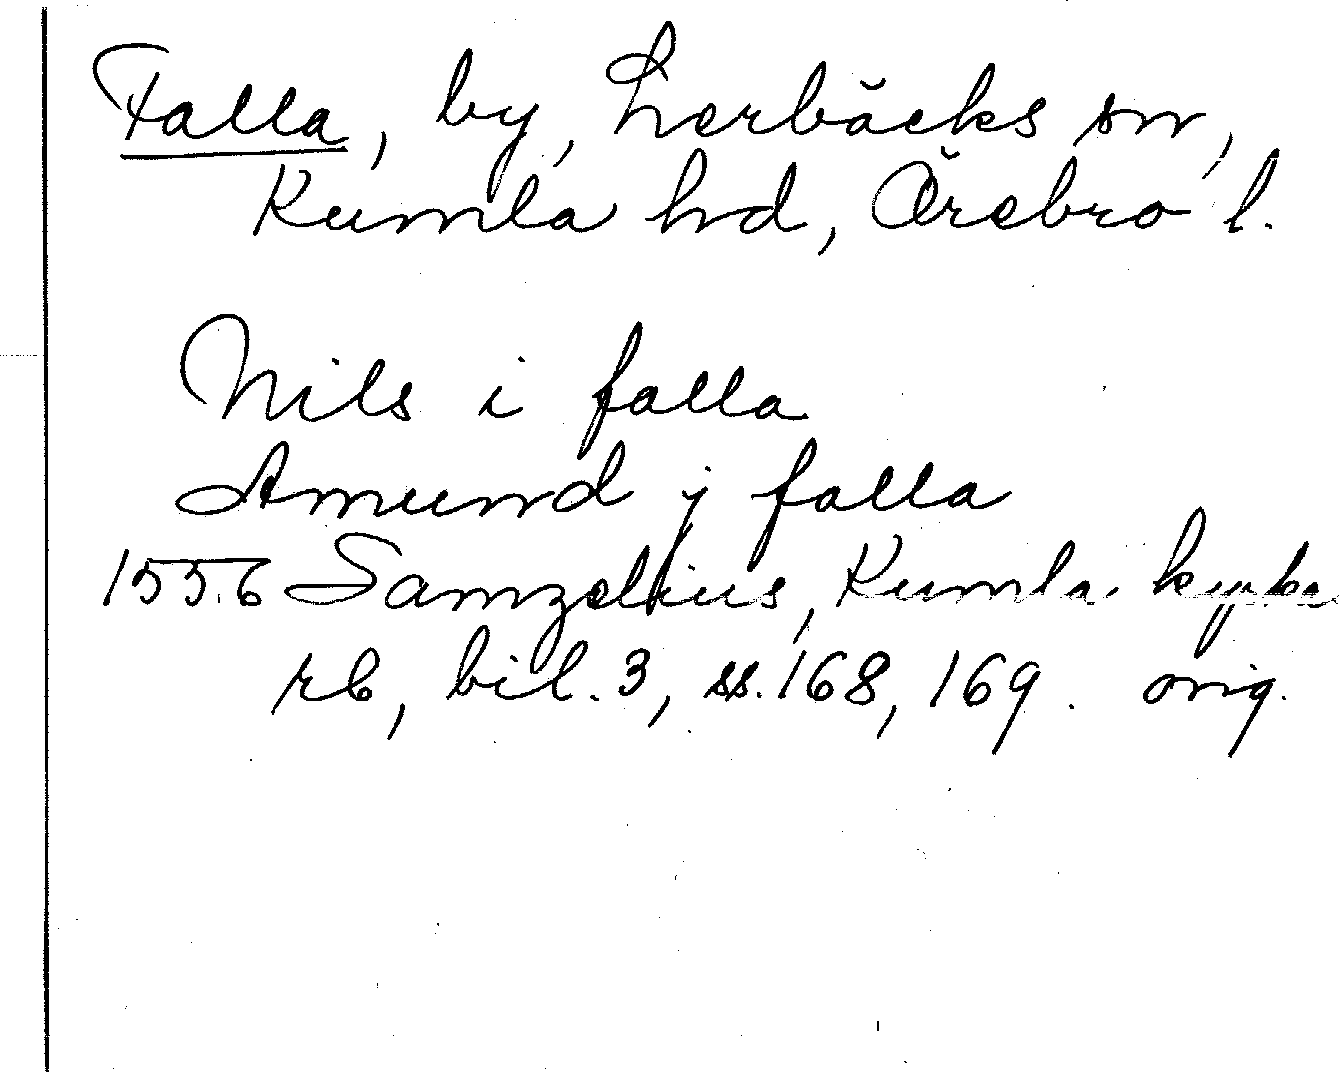 Falla, by, Lerbäcks sn,
Kumla hd, Örebro l.
Nils i falla
Amund j falla
1556 Samzelius, Kumla kyrkas
rb, bil. 3, ss. 168, 169. orig.